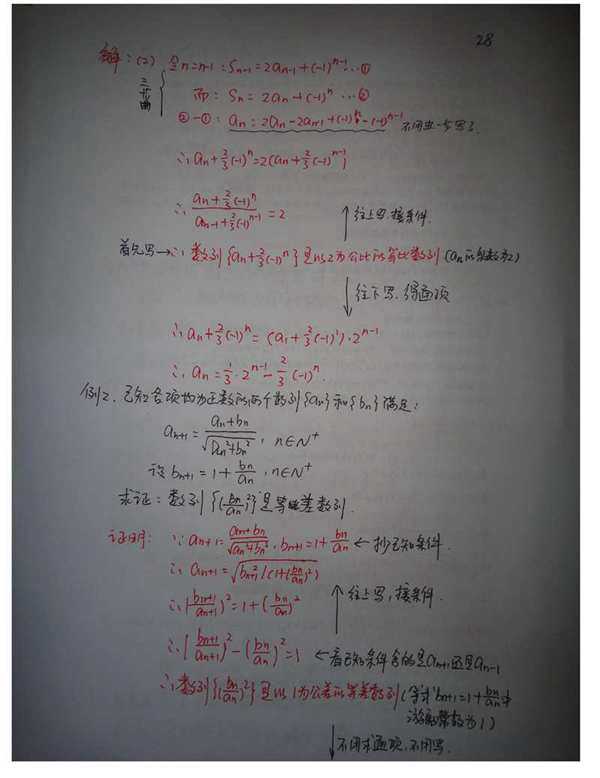 28
解:(2) 令n=n-1:Sn-1=2an-1+(-1)^{n-1} …①
三步曲
而:Sn=2an+(-1)^n …②
②-①:an=2an-2an-1+(-1)^n-(-1)^{n-1} 不用这一步写了.
∴an+2/3(-1)^n=2(an+2/3(-1)^{n-1})
∴ (an+2/3(-1)^n)/(an-1+2/3(-1)^{n-1})=2 ↑往上写,接条件.
首先写→∴数列{an+2/3(-1)^n}是以2为公比的等比数列(an的系数为2)
↓往下写,得通项
∴an+2/3(-1)^n=(a1+2/3(-1)^1)·2^{n-1}
∴an=1/3·2^{n-1}-2/3(-1)^n.
例2.已知各项均为正数的两个数列{an}和{bn}满足:
an+1=(an+bn)/√(an²+bn²),n∈N^+
设bn+1=1+bn/an,n∈N^+
求证:数列{(bn/an)²}是等差数列.
证明: ∵an+1=(an+bn)/√(an²+bn²),bn+1=1+bn/an ←抄已知条件.
∴an+1=√(bn+1²/(1+(bn/an)²))
∴(bn+1/an+1)²=1+(bn/an)² ↑往上写,接条件.
∴(bn+1/an+1)²-(bn/an)²=1 ←看已知条件含的是an+1还是an-1
∴数列{(bn/an)²}是以1为公差的等差数列(等式bn+1=1+bn/an中
常数为1)
↓不用求通项,不用写.